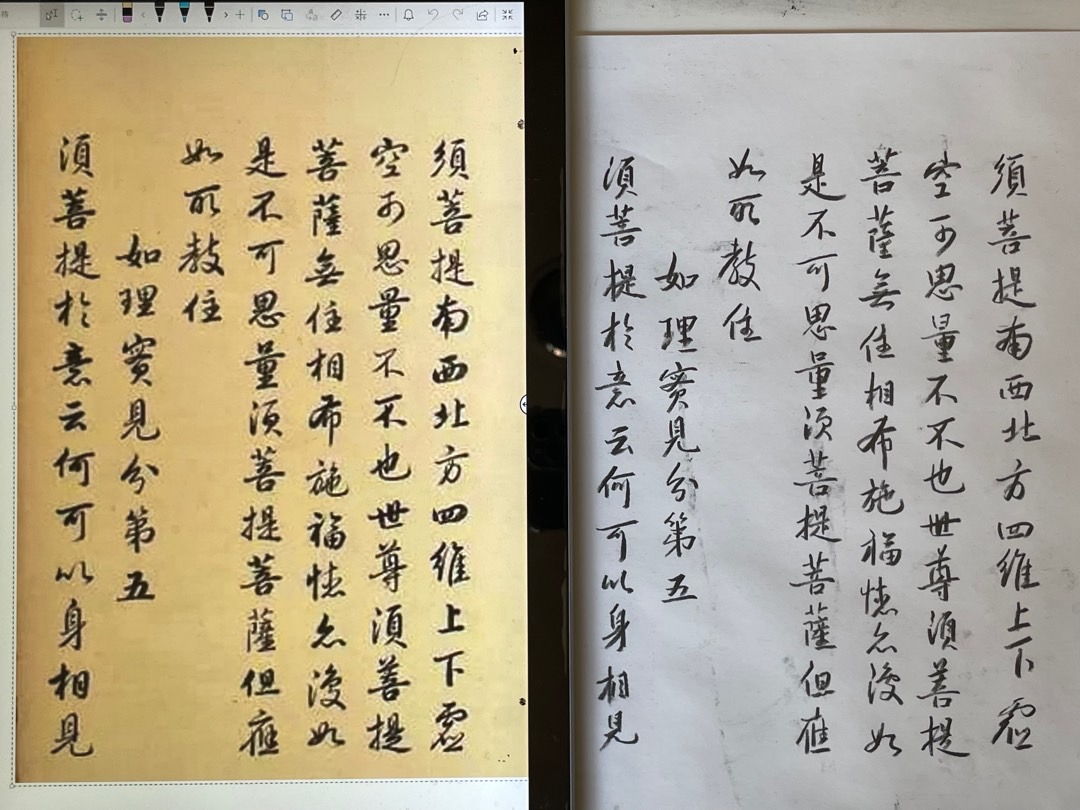 須菩提南西北方四維上下虛
空可思量不不也世尊須菩提
菩薩無住相布施福德亦復如
是不可思量須菩提菩薩但應
如所教住
如理實見分第五
須菩提於意云何可以身相見
須菩提南西北方四維上下虛
空可思量不不也世尊須菩提
菩薩無住相布施福德亦復如
是不可思量須菩提菩薩但應
如所教住
如理實見分第五
須菩提於意云何可以身相見